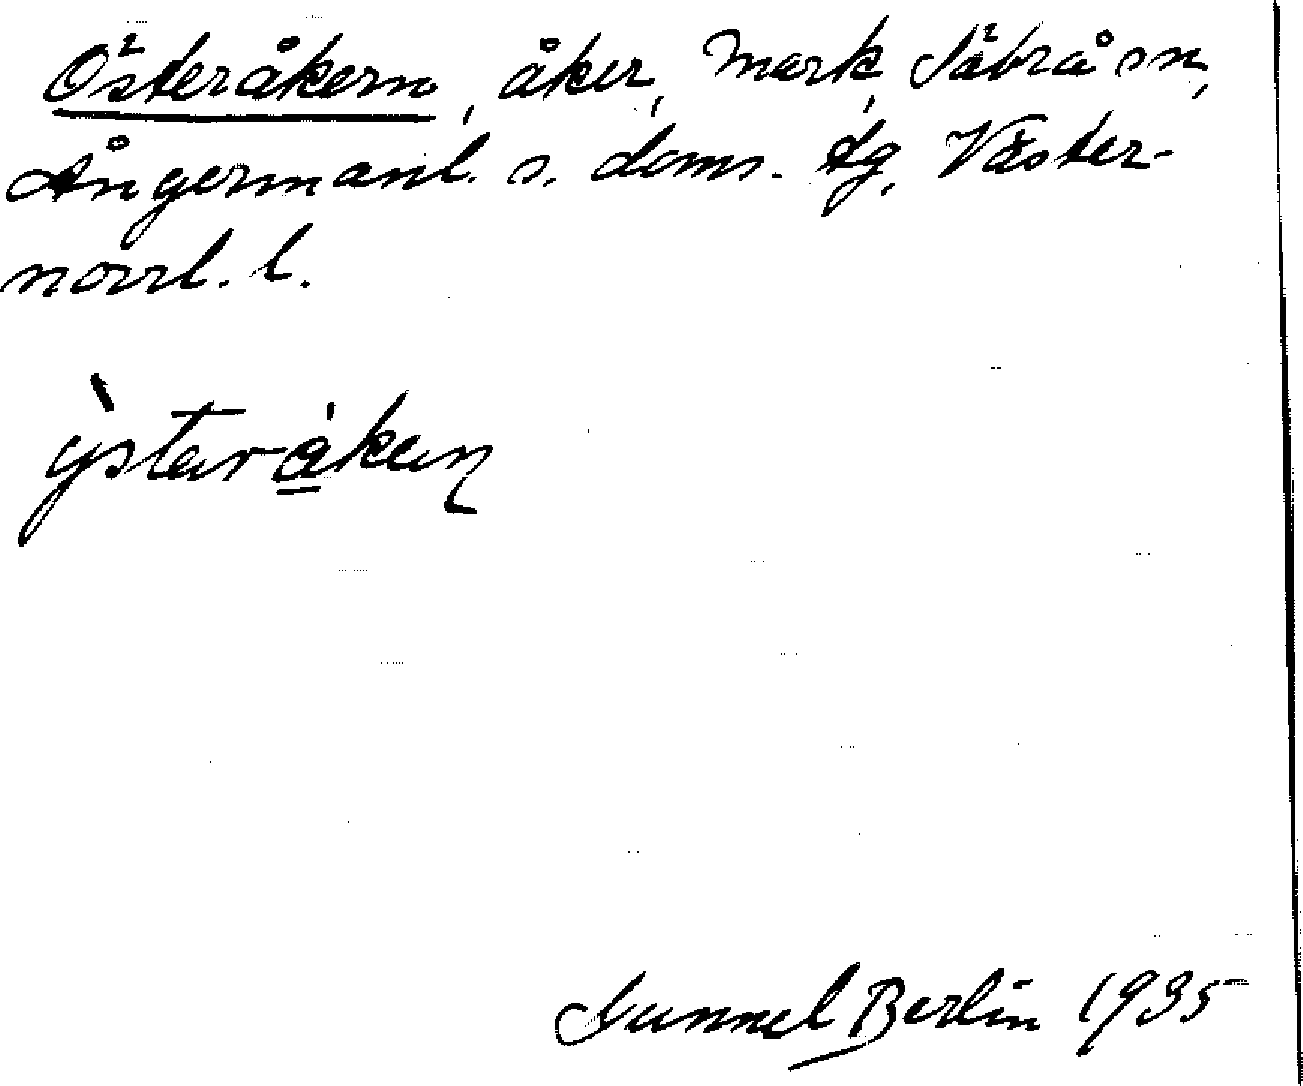 Österåkern, åker, Mark, Säbrå sn,
Ångermanl. s. doms. tg, Väster-
norrl. l.
ỳstaråkan
Gunnel Berlin 1935